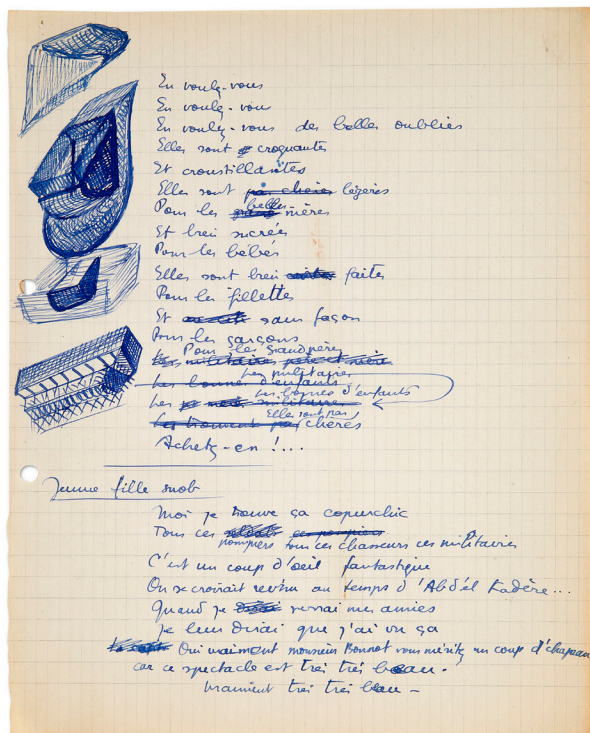 En voulez-vous
En voulez-vous
En voulez-vous des belles oublies
Elles sont croquantes
Et croustillantes
Elles sont pas chères légères
Pour les belles-mères
Et bien sucrées
Pour les bébés
Elles sont bien faites
Pour les fillettes
Et sans façon
Pour les garçons
Pour les grand-pères
Les militaires père et mère
Les militaires
Les bonnes d'enfants
Les bonnes d'enfants
Les militaires
Elles sont pas
chères
Achetez-en !...
Jeune fille snob
Moi je trouve ça copurchic
Tous ces soldats ces pompiers
pompiers tous ces chasseurs ces militaires
C'est un coup d'oeil fantastique
On se croirait revenu au temps d'Abd'él Kadère...
Quand je verrai mes amies
Je leur dirai que j'ai vu ça
Oui vraiment monsieur Bonnot vous méritez un coup d'chapeau
car ce spectacle est très très beau.
Vraiment très très beau -